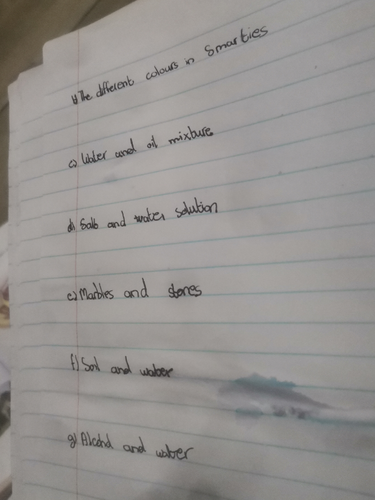 b) The different colours in Smarties
c) Water and oil mixture
d) Salt and water solution
e) Marbles and stones
f) Soil and water
g) Alcohol and water